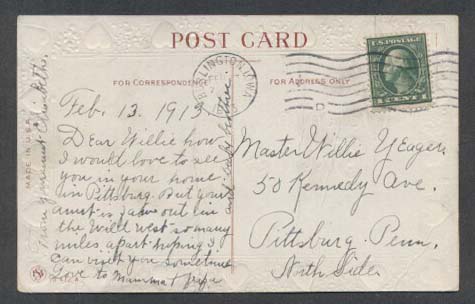 POST CARD
BURLINGTON, IOWA
FEB
U.S. POSTAGE
1 CENT 1
D
FOR CORRESPONDENCE
FOR ADDRESS ONLY
Feb. 13. 1913
Dear Willie how
I would love to see
you in your home
in Pittsburg. But your
aunt is away out in
the Wild West so many
miles apart hoping I
can visit you sometime
Love to Mamma & Papa
and baby brother
from your aunt
Master Willie Yeager
50 Kennedy Ave.
Pittsburg. Penn.
North Side
MADE IN U.S.A.